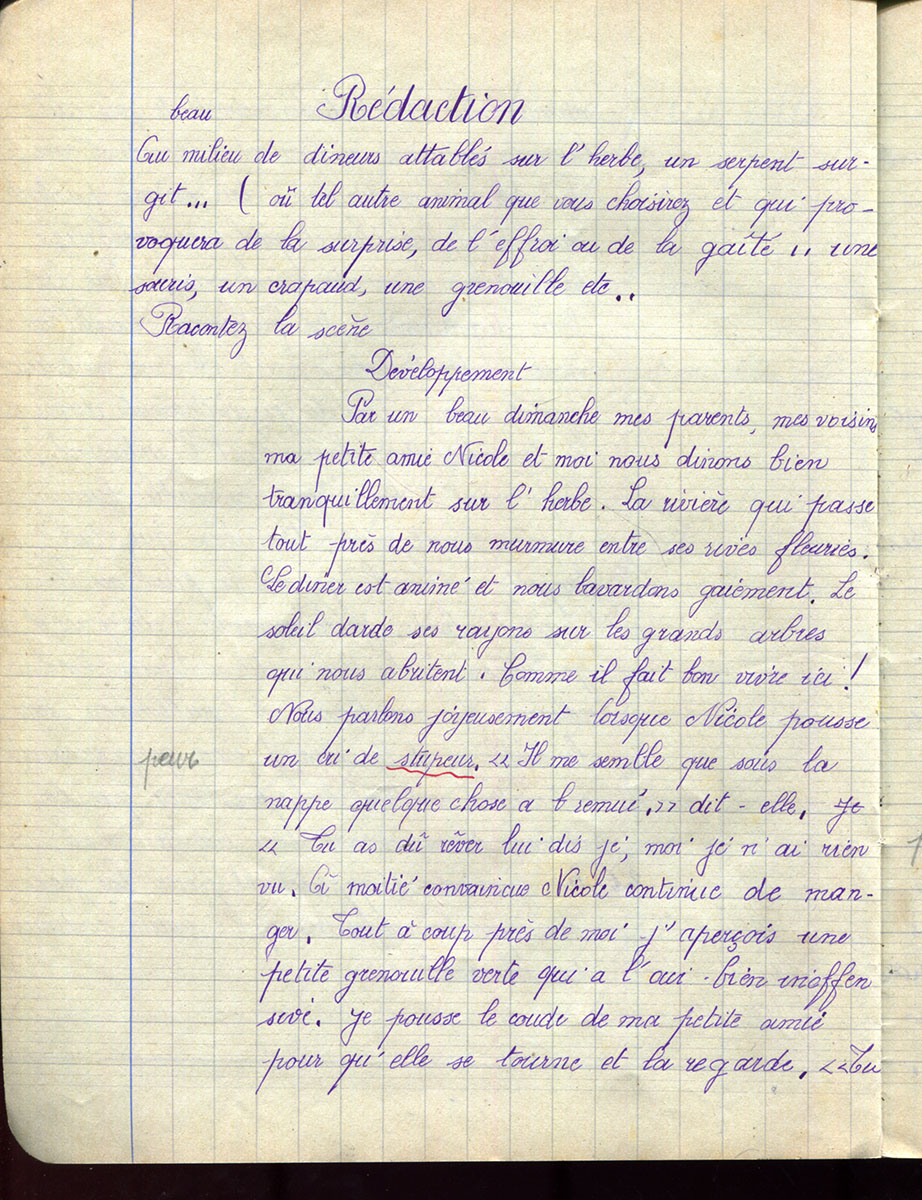 Rédaction
beau
Au milieu de dineurs attablés sur l'herbe, un serpent sur-
git... ( où tel autre animal que vous choisirez et qui pro-
voquera de la surprise, de l'effroi ou de la gaîté .. une
souris, un crapaud, une grenouille etc..
Racontez la scène
Développement
Par un beau dimanche mes parents, mes voisins
ma petite amie Nicole et moi nous dinons bien
tranquillement sur l'herbe. La rivière qui passe
tout près de nous murmure entre ses rives fleuries.
Le diner est animé et nous bavardons gaiement. Le
soleil darde ses rayons sur les grands arbres
qui nous abritent. Comme il fait bon vivre ici !
Nous parlons joyeusement lorsque Nicole pousse
un cri de stupeur. << Il me semble que sous la
peur
nappe quelque chose a bremué. >> dit - elle. Je
<< Tu as dû rêver lui dis je, moi je n'ai rien
vu. A moitié convaincue Nicole continue de man-
ger. Tout à coup près de moi j'aperçois une
petite grenouille verte qui a l'air bien inoffen
sive. Je pousse le coude de ma petite amie
pour qu'elle se tourne et la regarde. <<Tu